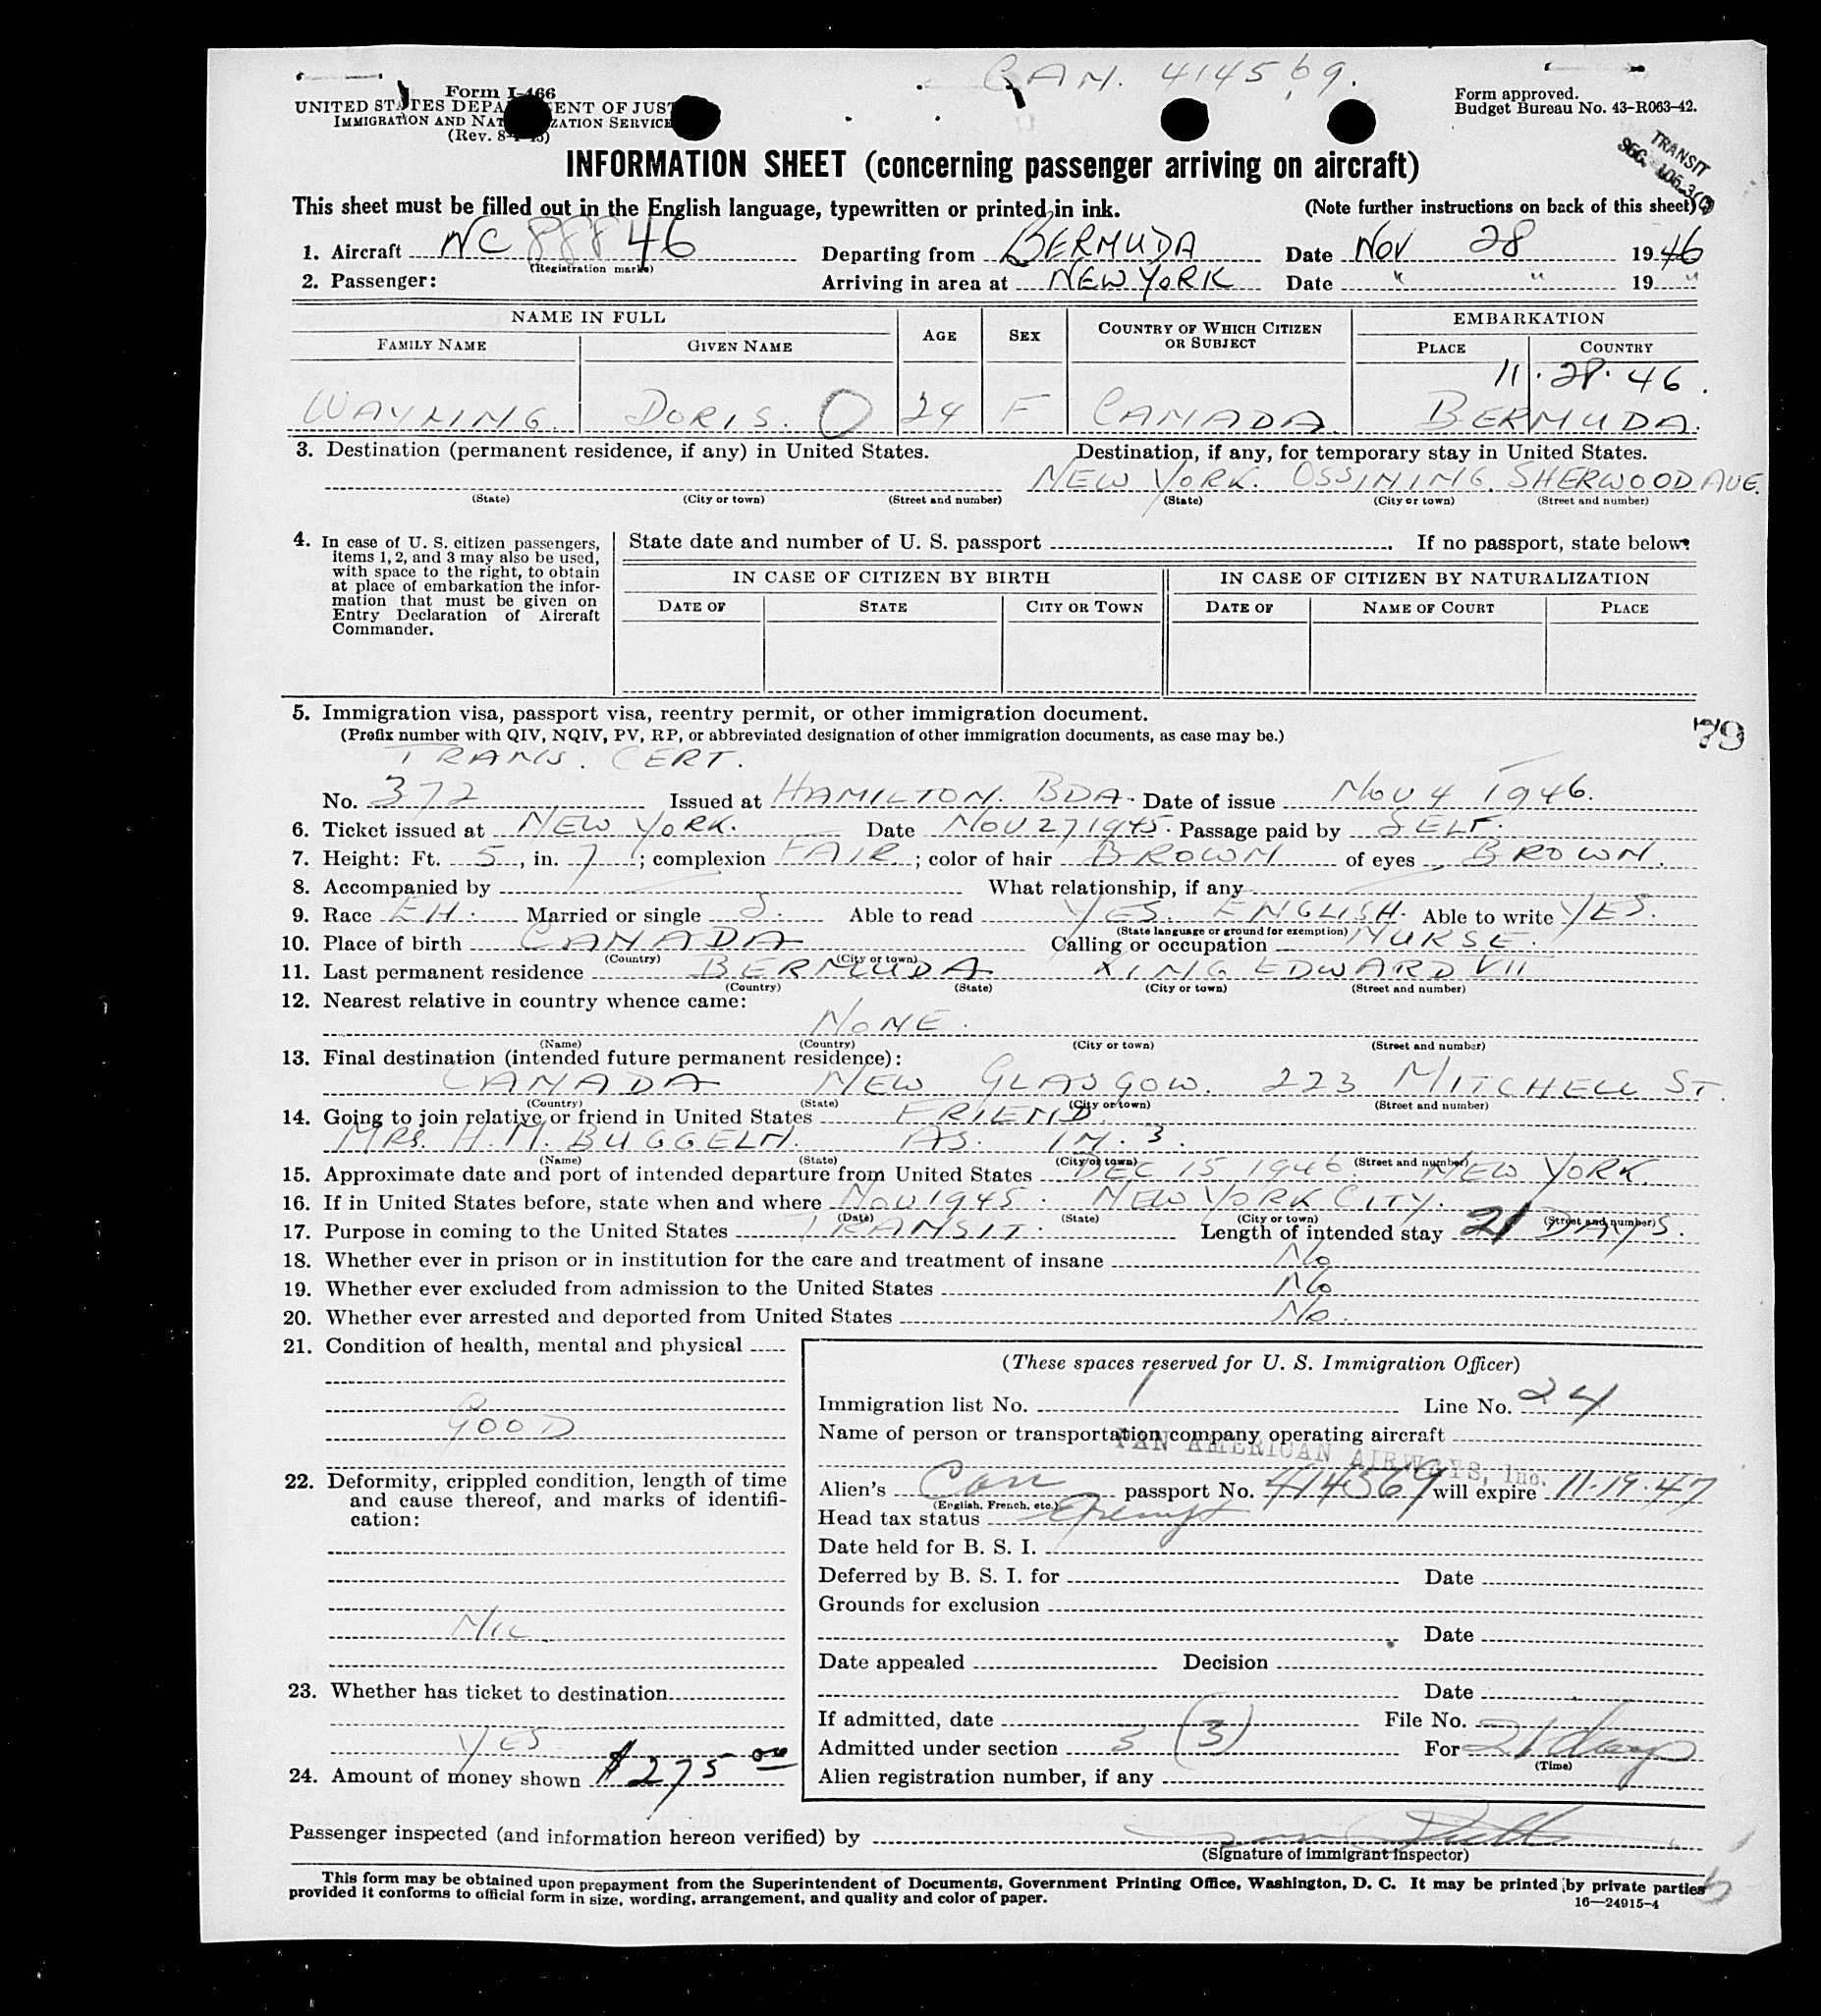 CAN. 414569.
Form I-466
UNITED STATES DEPARTMENT OF JUSTICE
IMMIGRATION AND NATURALIZATION SERVICE
(Rev. 8-
Form approved.
Budget Bureau No. 43-R063-42.
TRANSIT
SEC.
INFORMATION SHEET (concerning passenger arriving on aircraft)
This sheet must be filled out in the English language, typewritten or printed in ink. (Note further instructions on back of this sheet)
1. Aircraft NC 88846 Departing from BERMUDA Date Nov 28 1946
(Registration marks)
2. Passenger: Arriving in area at NEW YORK Date " " 19 "
NAME IN FULL AGE SEX COUNTRY OF WHICH CITIZEN OR SUBJECT EMBARKATION
FAMILY NAME GIVEN NAME PLACE COUNTRY
11.28.46.
WAYNING. DORIS. O 24 F CANADA. BERMUDA.
3. Destination (permanent residence, if any) in United States. Destination, if any, for temporary stay in United States.
NEW YORK. OSSINING. SHERWOOD AVE.
(State) (City or town) (Street and number) (State) (City or town) (Street and number)
4. In case of U. S. citizen passengers, items 1, 2, and 3 may also be used, with space to the right, to obtain at place of embarkation the information that must be given on Entry Declaration of Aircraft Commander.
State date and number of U. S. passport . If no passport, state below:
IN CASE OF CITIZEN BY BIRTH IN CASE OF CITIZEN BY NATURALIZATION
DATE OF STATE CITY OR TOWN DATE OF NAME OF COURT PLACE
5. Immigration visa, passport visa, reentry permit, or other immigration document.
79
(Prefix number with QIV, NQIV, PV, RP, or abbreviated designation of other immigration documents, as case may be.)
TRANS. CERT.
No. 372 Issued at HAMILTON. BDA. Date of issue Nov 4 1946.
6. Ticket issued at NEW YORK. Date NOV 27 1945. Passage paid by SELF.
7. Height: Ft. 5, in. 7; complexion FAIR; color of hair BROWN of eyes BROWN.
8. Accompanied by What relationship, if any
9. Race EH. Married or single S. Able to read YES. ENGLISH. Able to write YES.
(State language or ground for exemption)
10. Place of birth CANADA Calling or occupation NURSE.
(Country) (City or town)
11. Last permanent residence BERMUDA KING EDWARD VII
(Country) (State) (City or town) (Street and number)
12. Nearest relative in country whence came:
NONE.
(Name) (Country) (City or town) (Street and number)
13. Final destination (intended future permanent residence):
CANADA NEW GLASGOW. 223 MITCHELL ST.
(Country) (State) (City or town) (Street and number)
14. Going to join relative or friend in United States FRIEND.
MRS. H. M. BUGGELN. AS. IN. 3.
(Name) (State) (City or town) (Street and number)
15. Approximate date and port of intended departure from United States DEC 15 1946 NEW YORK.
16. If in United States before, state when and where NOV 1945. NEW YORK CITY.
(Date) (State) (City or town) (Street and number)
17. Purpose in coming to the United States TRANSIT. Length of intended stay 21 DAYS.
18. Whether ever in prison or in institution for the care and treatment of insane No
19. Whether ever excluded from admission to the United States No
20. Whether ever arrested and deported from United States No.
21. Condition of health, mental and physical
GOOD
22. Deformity, crippled condition, length of time and cause thereof, and marks of identification:
NIL
23. Whether has ticket to destination
YES
24. Amount of money shown $275 00
(These spaces reserved for U. S. Immigration Officer)
Immigration list No. 1 Line No. 24
Name of person or transportation company operating aircraft
PAN AMERICAN AIRWAYS, Inc.
Alien's Can passport No. 414569 will expire 11-19-47
(English, French, etc.)
Head tax status Exempt
Date held for B. S. I.
Deferred by B. S. I. for Date
Grounds for exclusion
Date
Date appealed Decision
Date
If admitted, date File No.
Admitted under section 3 (3) For 21 days
(Time)
Alien registration number, if any
Passenger inspected (and information hereon verified) by
(Signature of immigrant inspector)
This form may be obtained upon prepayment from the Superintendent of Documents, Government Printing Office, Washington, D. C. It may be printed by private parties
provided it conforms to official form in size, wording, arrangement, and quality and color of paper.
16—24915-4